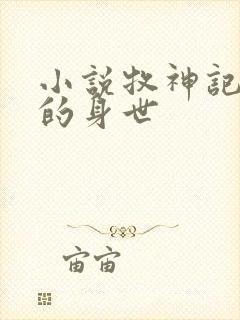 小說牧神記
的身世
宙宙